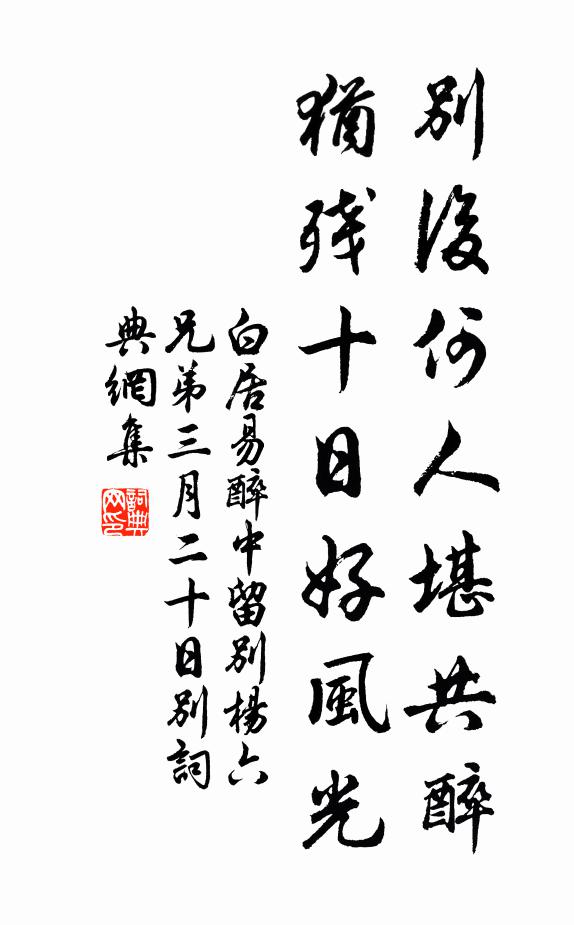 別後何人堪共醉
猶残十日好風光
白居易醉中留別楊六
兄弟三月二十日別詞
典網集
詞典
网印